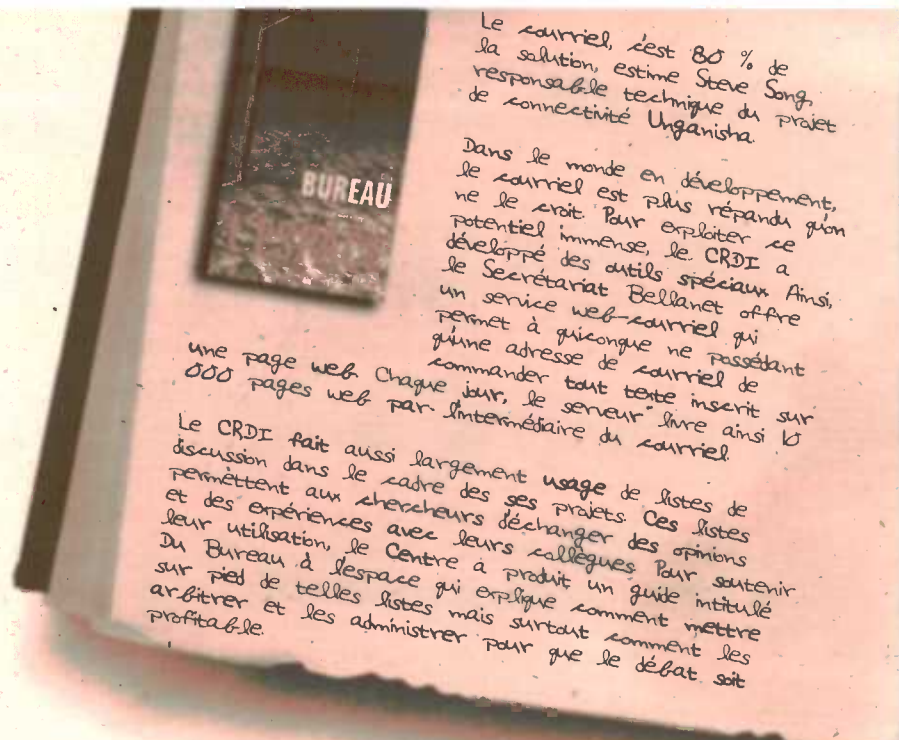 BUREAU
Le courriel, c'est 80 % de
la solution, estime Steve Song,
responsable technique du projet
de connectivité Unganisha.
Dans le monde en développement,
le courriel est plus répandu qu'on
ne le croit. Pour exploiter ce
potentiel immense, le CRDI a
développé des outils spéciaux. Ainsi,
le Secrétariat Bellanet offre
un service web-courriel qui
permet à quiconque ne possédant
qu'une adresse de courriel de
commander tout texte inscrit sur
une page web. Chaque jour, le serveur livre ainsi 10
000 pages web par l'intermédiaire du courriel.
Le CRDI fait aussi largement usage de listes de
discussion dans le cadre des ses projets. Ces listes
permettent aux chercheurs d'échanger des opinions
et des expériences avec leurs collègues. Pour soutenir
leur utilisation, le Centre a produit un guide intitulé
Du Bureau à l'espace qui explique comment mettre
sur pied de telles listes mais surtout comment les
arbitrer et les administrer pour que le débat soit
profitable.